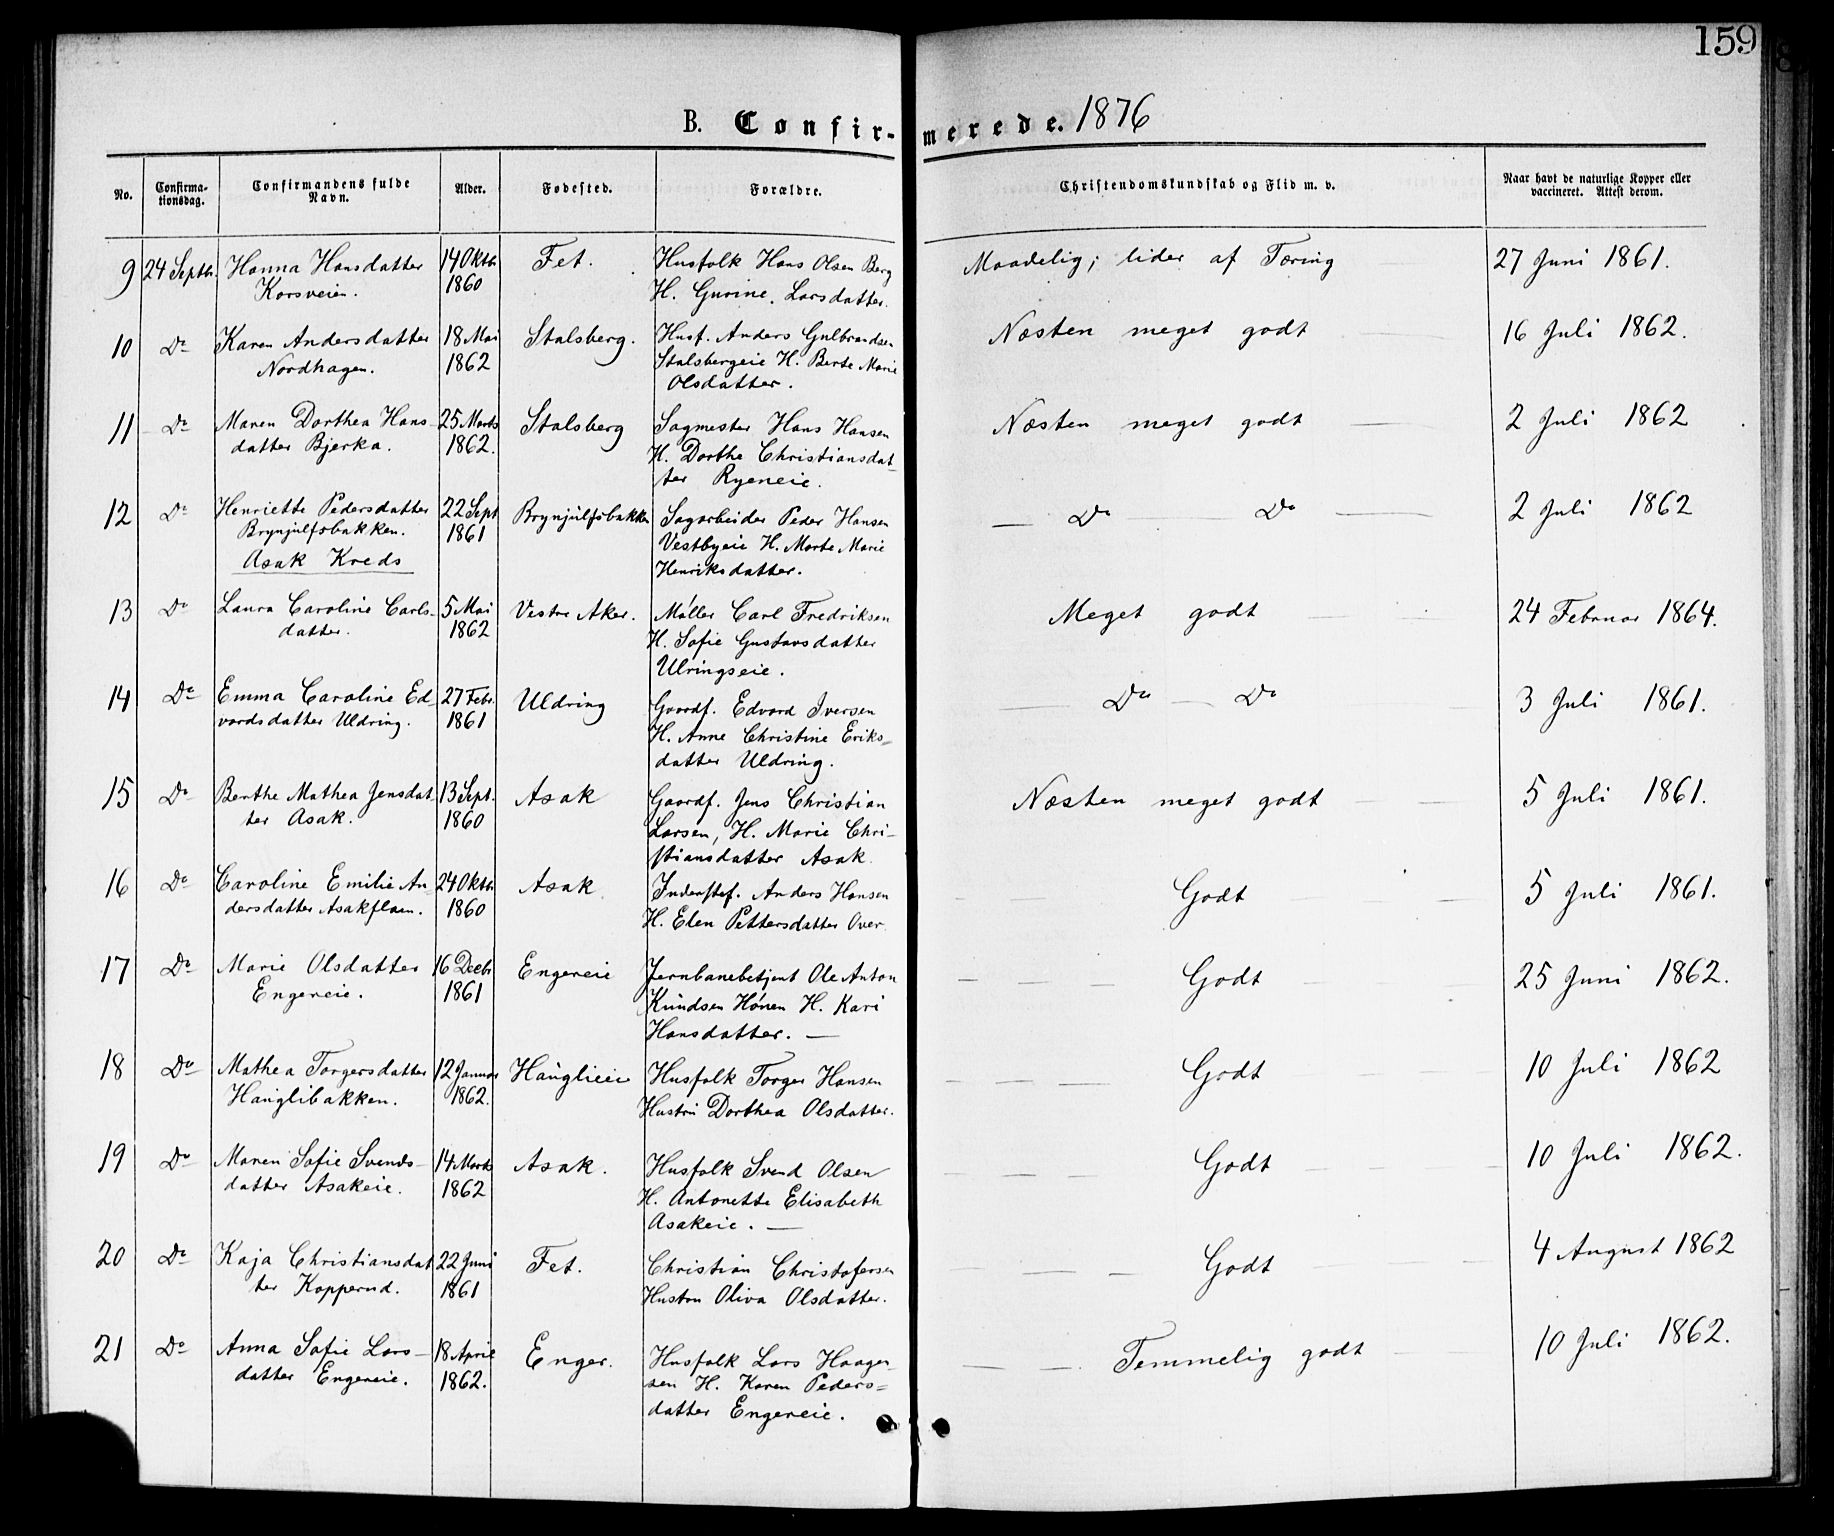 159
B. Confir- merede. 1876
No.
Confirma-
tionsdag.
Confirmandens fulde
Navn.
Alder.
Fødested.
Forældre.
Christendomskundskab og Flid m. v.
Naar havt de naturlige Kopper eller
vaccineret. Attest derom.
9 24 Septb. Hanna Hansdatter 14 Oktb. Fet. Husfolk Hans Olsen Berg Maadelig; lider af Tæring 27 Juni 1861.
Korsveien. 1860 H. Gurine Larsdatter.
10 Do Karen Andersdatter 18 Mai Stalsberg. Husf. Anders Gulbrandsen Næsten meget godt 16 Juli 1862.
Nordhagen. 1862 Stalsbergeie H. Berte Marie
Olsdatter.
11 Do Maren Dorthea Hans- 25 Marts Stalsberg Sagmester Hans Hansen Næsten meget godt 2 Juli 1862
datter Bjerka. 1862. H. Dorthe Christiansdat-
ter Ryeneie.
12 Do Henriette Pedersdatter 22 Sept Brynjulfsbakken Sagarbeider Peder Hansen — Do — Do 2 Juli 1862
Brynjulfsbakken. 1861 Vestbyeie H. Marte Marie
Asak Kreds Henriksdatter.
13 Do Laura Caroline Carls- 5 Mai Vestre Aker. Møller Carl Fredriksen Meget godt 24 Februar 1864.
datter. 1862 H. Sofie Gustavsdatter
Ulringseie.
14 Do Emma Caroline Ed- 27 Febr. Uldring Gaardf. Edvard Iversen Do — Do 3 Juli 1861.
vardsdatter Uldring. 1861 H. Anne Christine Eriks=
datter Uldring.
15 Do Berthe Mathea Jensdat- 13 Sept. Asak Gaardf. Jens Christian Næsten meget godt 5 Juli 1861.
ter Asak. 1860 Larsen, H. Marie Chri-
stiansdatter Asak.
16 Do Caroline Emilie An- 24 Oktb. Asak Inderstef. Anders Hansen Godt 5 Juli 1861.
dersdatter Asakflaen. 1860 H. Elen Pettersdatter Over
17 Do Marie Olsdatter 16 Decbr Engereie Jernbanebetjent Ole Anton Godt 25 Juni 1862.
Engereie. 1861 Knudsen Hønen H. Kari
Hansdatter. —
18 Do Mathea Torgersdatter 12 Januar Hauglieie Husfolk Torger Hansen Godt 10 Juli 1862
Hauglibakken. 1862. Hustru Dorthea Olsdatter.
19 Do Maren Sofie Svends- 14 Marts Asak. Husfolk Svend Olsen Godt 10 Juli 1862.
datter Asakeie. 1862 H. Antonette Elisabeth
Asakeie. —
20 Do Kaja Christiansdat- 22 Juni Fet. Christian Christofersen Godt 4 August 1862
ter Kopperud. 1861 Hustru Oliva Olsdatter.
21 Do Anna Sofie Lars- 18 April Enger. Husfolk Lars Haagen- Temmelig godt 10 Juli 1862.
datter Engereie. 1862. sen H. Karen Peders=
datter Engereie.